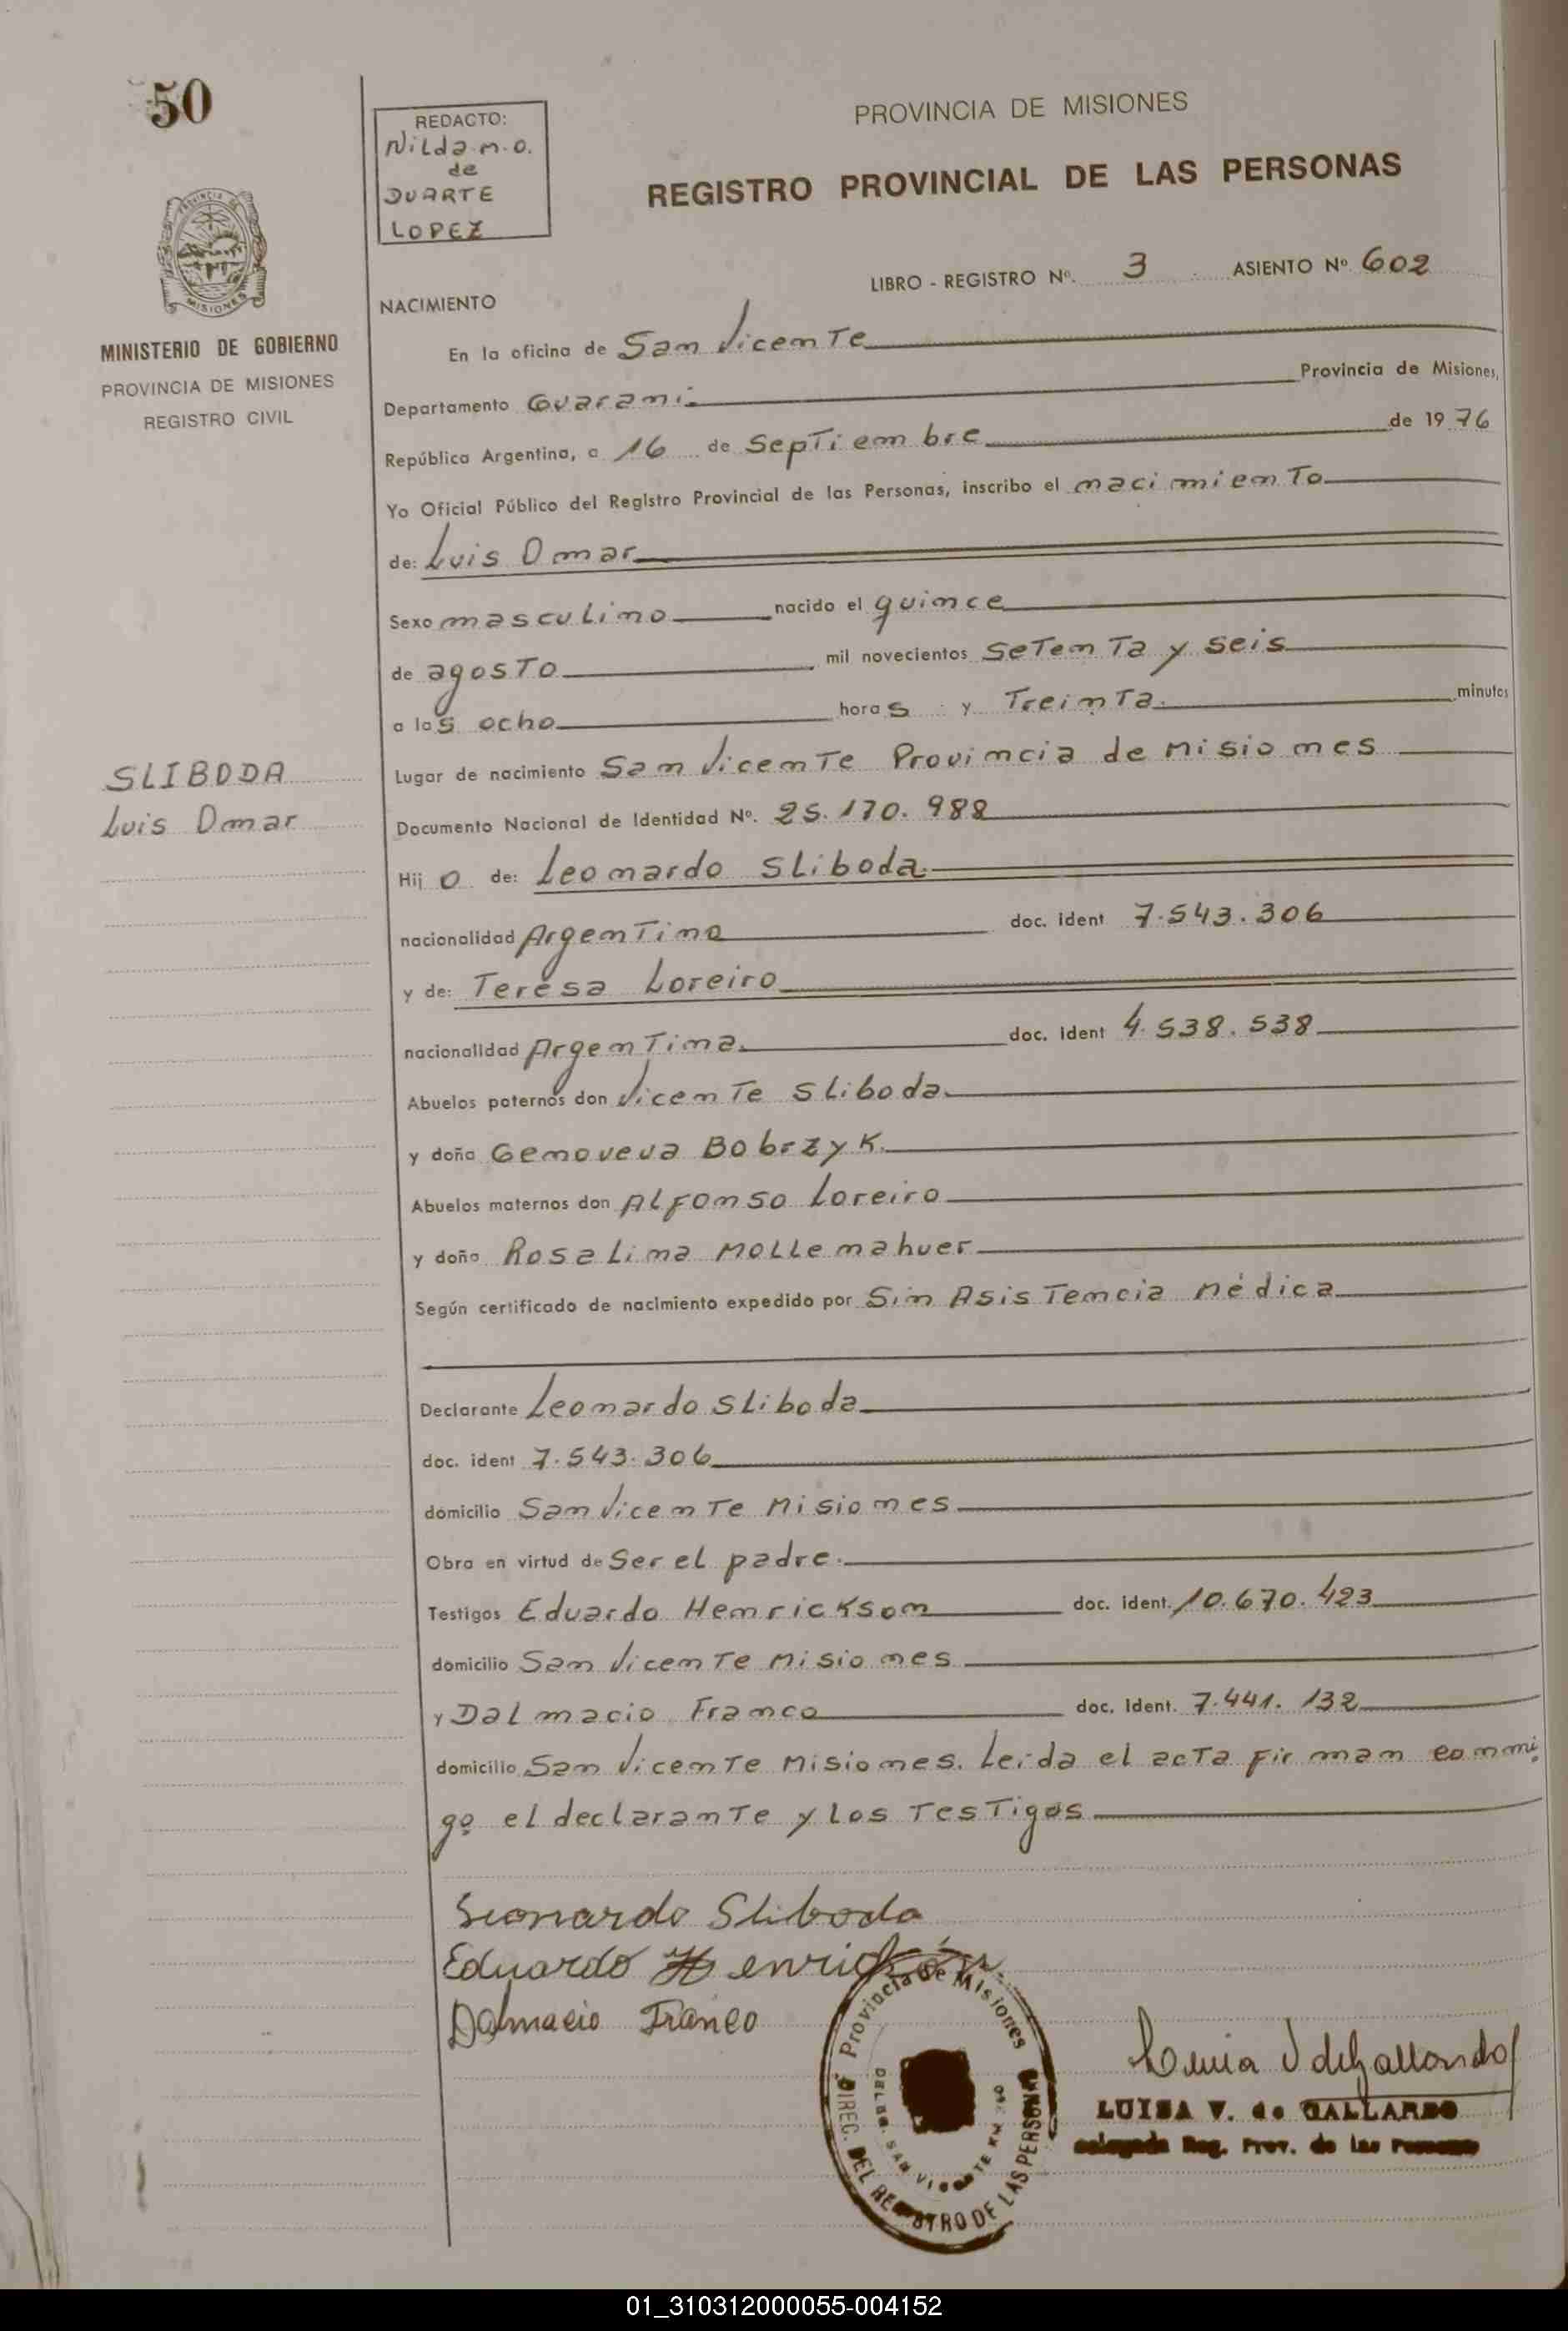 50
REDACTO:
Nilda m.o.
de
DUARTE
LOPEZ
PROVINCIA DE MISIONES
REGISTRO PROVINCIAL DE LAS PERSONAS
LIBRO - REGISTRO Nº. 3 ASIENTO Nº 602
PROVINCIA DE
MISIONES
MINISTERIO DE GOBIERNO
PROVINCIA DE MISIONES
REGISTRO CIVIL
NACIMIENTO
En la oficina de San Vicente
Departamento Guarani Provincia de Misiones,
República Argentina, a 16 de Septiembre de 1976
Yo Oficial Público del Registro Provincial de las Personas, inscribo el nacimiento
de: Luis Omar
Sexo masculino nacido el quince
de agosto mil novecientos setenta y seis
a las ocho horas y Treinta minutos
SLIBODA
Luis Omar
Lugar de nacimiento San Vicente Provincia de Misiones
Documento Nacional de Identidad Nº. 25.170.988
Hijo de: Leonardo Sliboda
nacionalidad Argentina doc. ident 7.543.306
y de: Teresa Loreiro
nacionalidad Argentina doc. ident 4.538.538
Abuelos paternos don Vicente Sliboda
y doña Genoveva Bobrzyk.
Abuelos maternos don Alfonso Loreiro
y doña Rosalina Mollemahuer
Según certificado de nacimiento expedido por Sin Asistencia Médica
Declarante Leonardo Sliboda
doc. ident 7.543.306
domicilio San Vicente Misiones
Obra en virtud de Ser el padre.
Testigos Eduardo Henrickson doc. ident. 10.670.423
domicilio San Vicente Misiones
y Dalmacio Franco doc. ident. 7.441.132
domicilio San Vicente Misiones. Leida el acta firman conmi
go el declarante y los Testigos
Leonardo Sliboda
Eduardo
Dalmacio Franco
Provincia de Misiones
DIREC. DEL REGISTRO DE LAS PERSONAS
SAN VICENTE
LUISA V. de GALLARDO
Delegada Reg. Prov. de las Personas
01_310312000055-004152